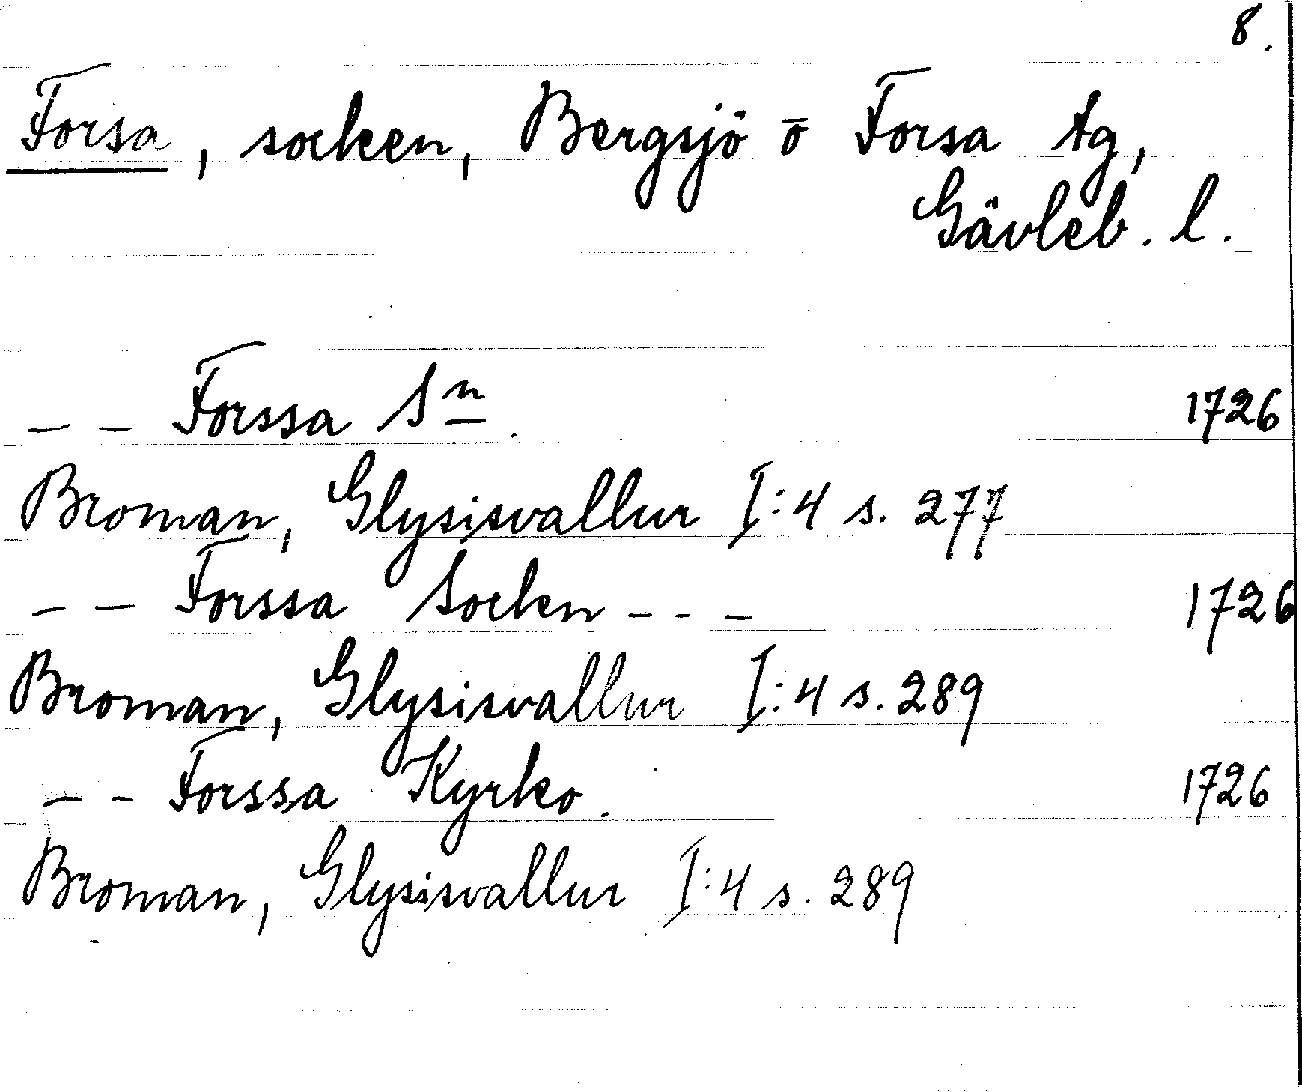 8.
Forsa, socken, Bergsjö o Forsa tg,
Gävleb. l.
– – Forssa Sn. 1726
Broman, Glysisvallur I:4 s. 277
– – Forssa Socken - - - 1726
Broman, Glysisvallur I:4 s. 289
– – Forssa Kyrko. 1726
Broman, Glysisvallur I:4 s. 289